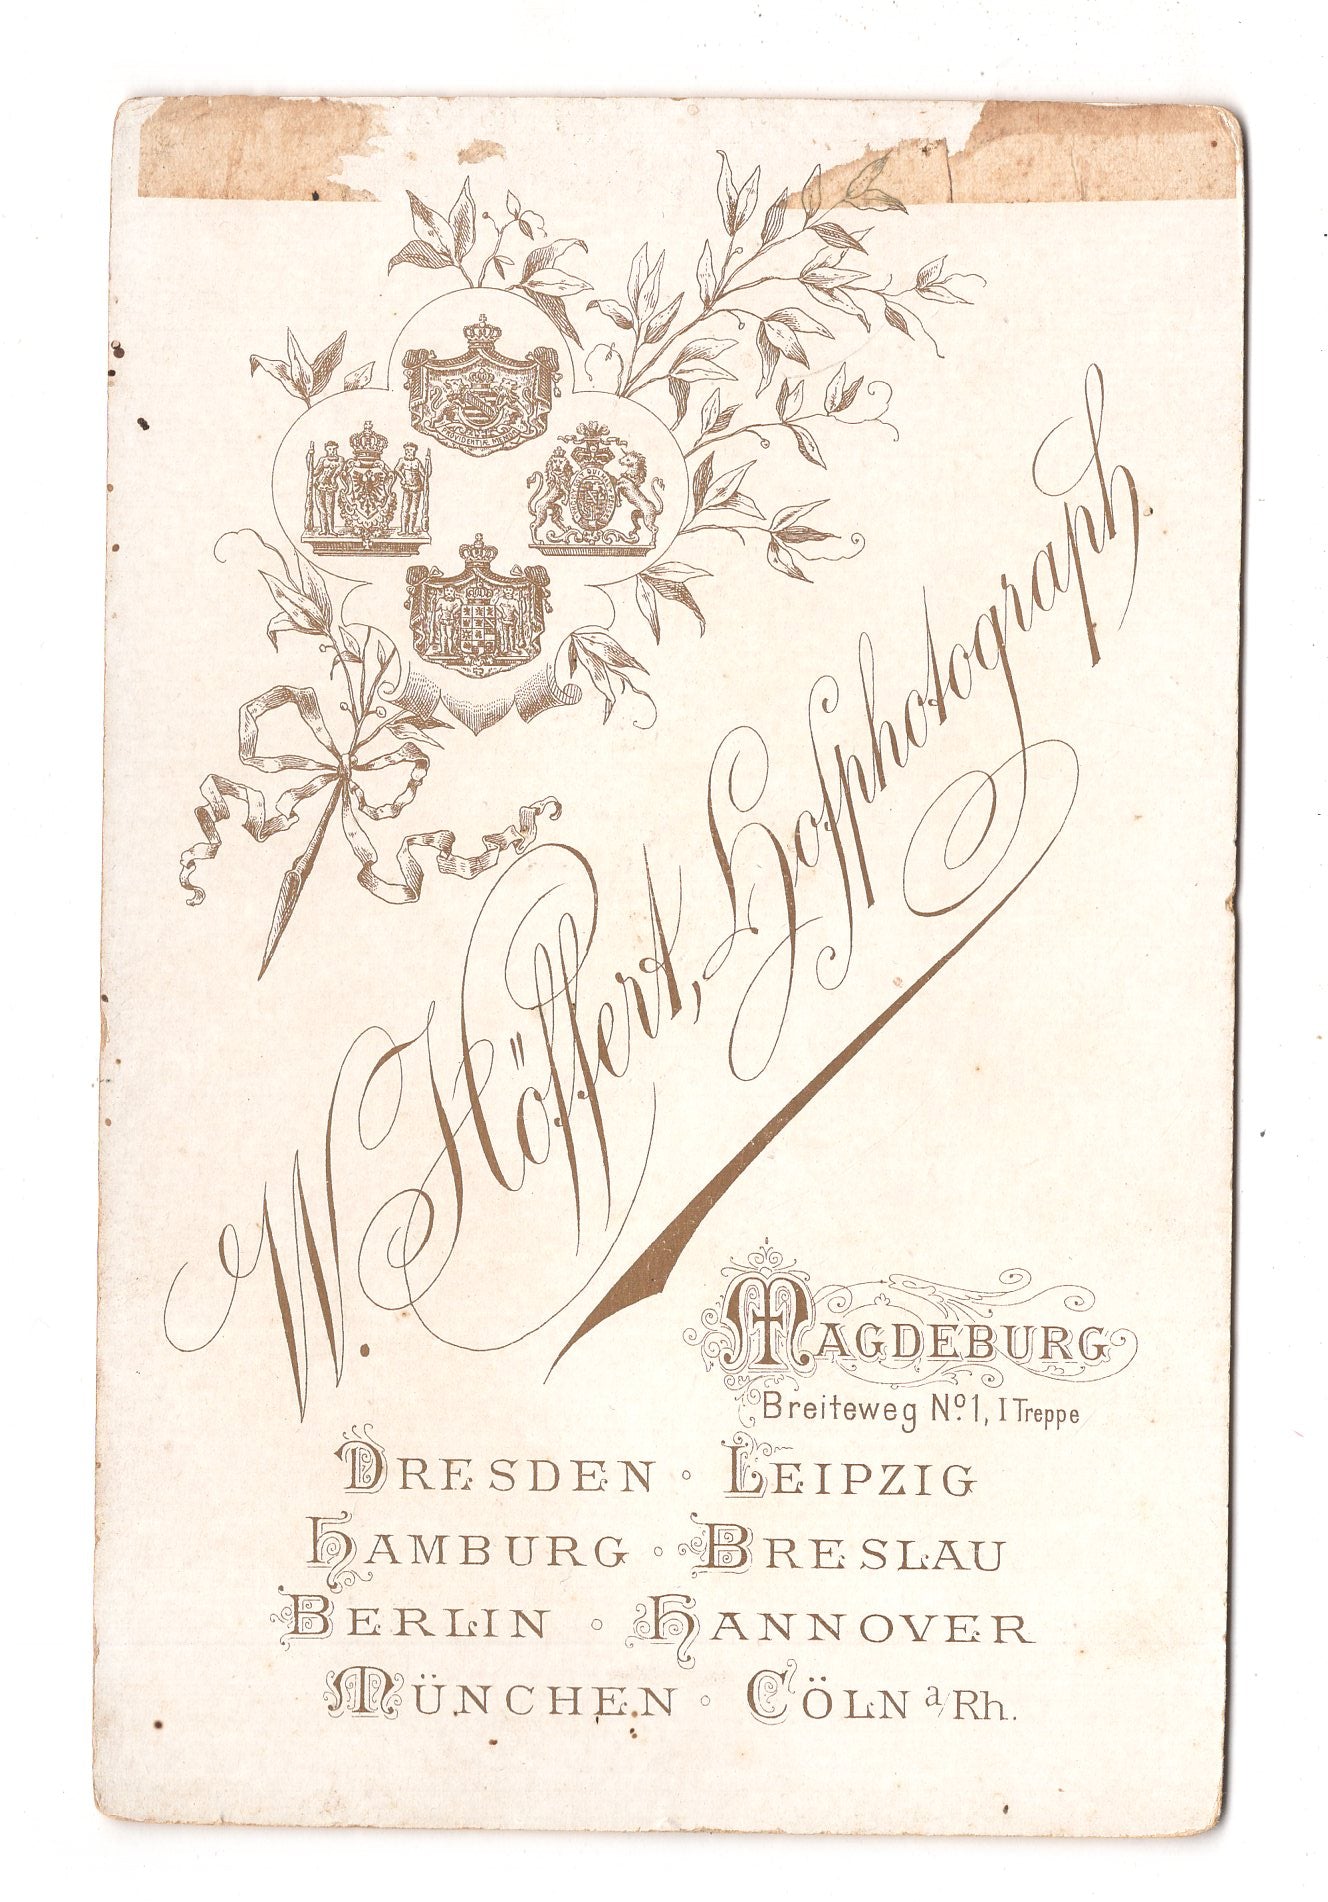 PROVIDENTIÆ MEMOR
W. Höffert, Hofphotograph.
MAGDEBURG
Breiteweg Nº 1, I Treppe
DRESDEN ◦ LEIPZIG
HAMBURG ◦ BRESLAU
BERLIN ◦ HANNOVER
MÜNCHEN ◦ CÖLN a/Rh.